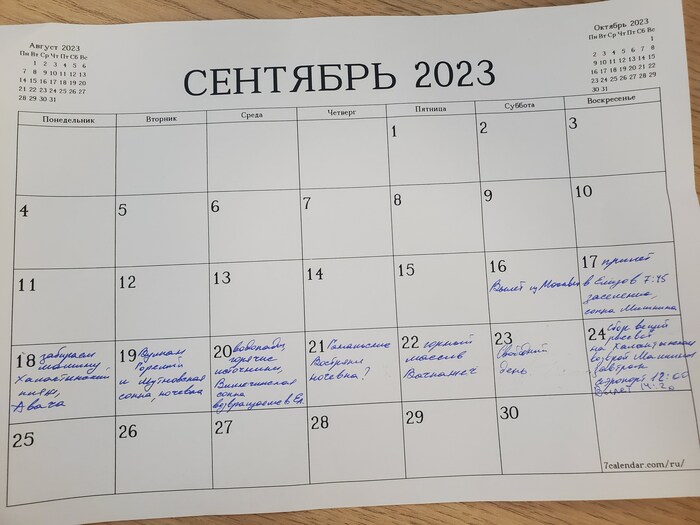 Август 2023
Пн Вт Ср Чт Пт Сб Вс
1 2 3 4 5 6
7 8 9 10 11 12 13
14 15 16 17 18 19 20
21 22 23 24 25 26 27
28 29 30 31
СЕНТЯБРЬ 2023
Октябрь 2023
Пн Вт Ср Чт Пт Сб Вс
1
2 3 4 5 6 7 8
9 10 11 12 13 14 15
16 17 18 19 20 21 22
23 24 25 26 27 28 29
30 31
Понедельник Вторник Среда Четверг Пятница Суббота Воскресенье
1 2 3
4 5 6 7 8 9 10
11 12 13 14 15
16
Вылет из Москвы
17 прилёт
в Елизово 7:45
заселение,
сопка Мишенна
18 забираем
машину,
Халактырский
пляж,
Авача
19 Вулкан
Горелый
и Мутновская
сопка, ночевка
20 водопады,
горячие
источники,
Вилючинская
сопка
возвращаемся в Ел
21
ночевка?
22 горный
массив
Вачкажец
23
Свободный
день
24 сбор вещей
рассвет
на Халактырском
завтрак
аэропорт 12:00
Вылет 14:20
25 26 27 28 29 30
7calendar.com/ru/